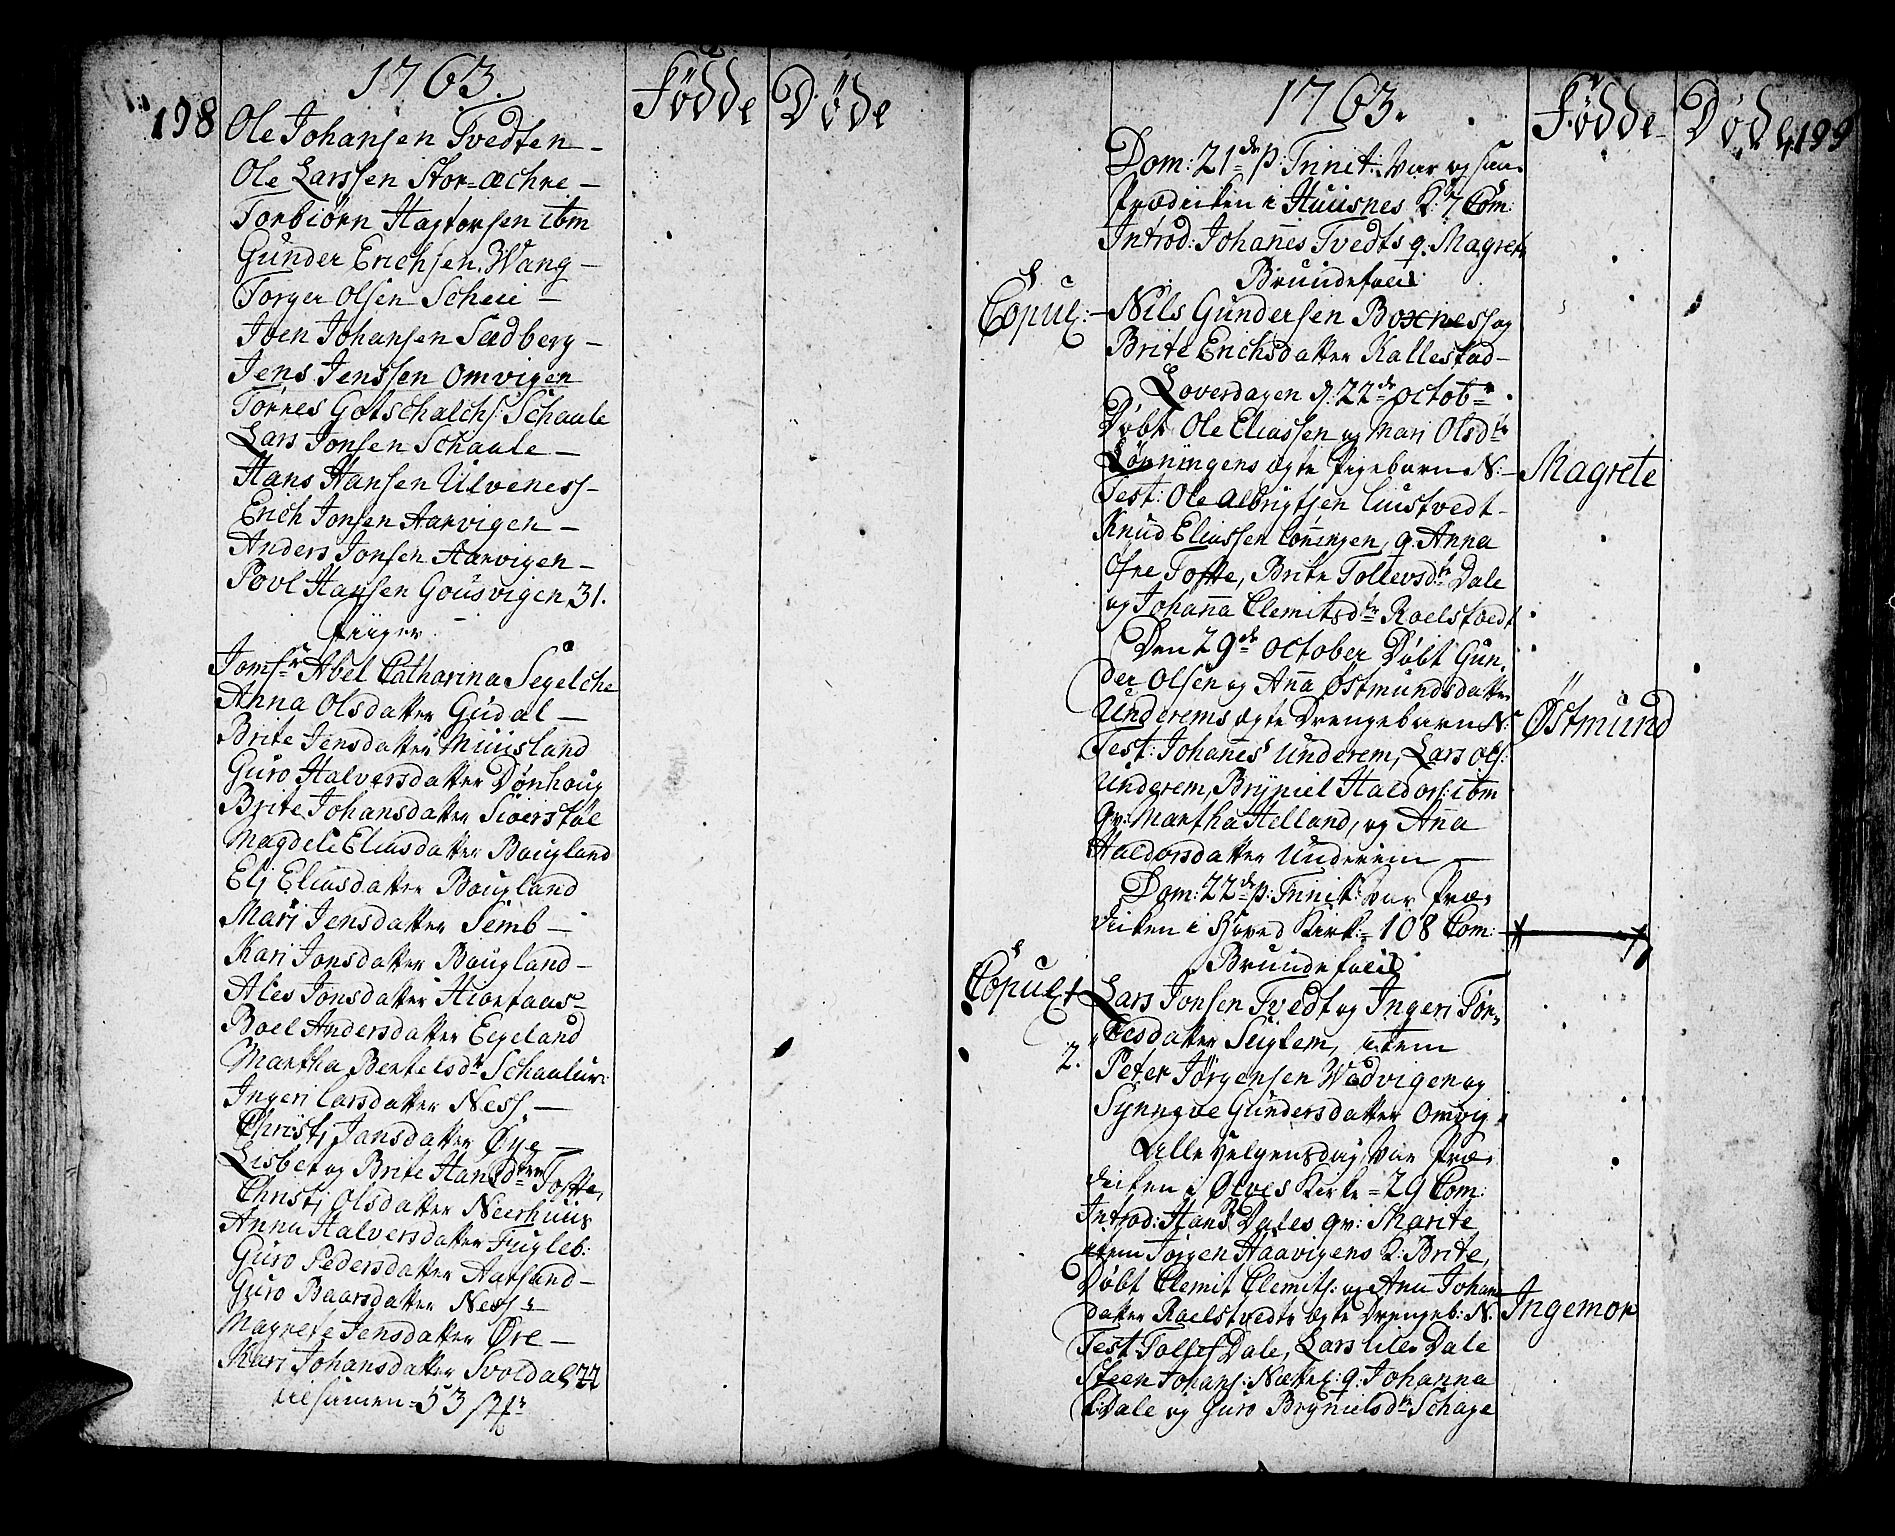 198
1763.
Fødde
Døde
Ole Johansen Tvedten –
Ole Larssen Stor=Æchre –
Torbiörn Hagtorsen ibm
Gunder Erichsen Wang –
Torger Olsen Scheie –
Joen Johansen Sædberg –
Jens Jenssen Omvigen
Tørres Gotschalchs: Schaale
Lars Jonsen Schaale –
Hans Hansen Ulveness –
Erich Jonsen Aarvigen –
Anders Jonsen Aarvigen –
Povl Hansen Gousvigen 31.
Piiger.
Jomfr Abel Catharina Segelche
Anna Olsdatter Gudal –
Brite Jensdatter Muusland
Guro Halversdatter Dønhoug
Brite Johansdatter
Magdele Eliasdatter Bougland
Eli Eliasdatter Bougland
Mari Jensdatter Semb –
Kari Jonsdatter Bougland –
Ales Jonsdatter Hiortaas –
Boel Andersdatter Eegeland
Martha Bertelsdtr
Ingeri Larsdatter Ness. –
Christi Jansdatter Øye –
Lisbet og Brite Hansdtrer Tofte,
Christi Olsdatter Neerhuus
Anna Halversdatter Fugleb:
Guro Pedersdatter Aarland –
Guro Baarsdatter Ness –
Magrete Jensdatter Øre –
Kari Johansdatter Svoldal 22
tilsamen = 53
1763.
Fødde
Døde
199
Dom: 21de p: Trinit: var og saa
Prædicken i Huusnes K: 7 Com:
Introd: Johanes Tvedts q. Magrete
Brudefolk
Copul: – Nils Gundersen Boxness og
Brite Erichsdatter Kallestad –
Løverdagen d: 22de octobr.
Døbt Ole Eliassen og Mari Olsdtr
Lønningens ægte Pigebarn N: – Magrete
Test: Ole Albrigtsen Liustvedt –
Knud Eliassen Lønningen, q. Anna
Øfre Tofte, Brite Tollevsdtr Dale
og Johanna Clemitsdtr Raelstvedt
Den 29de October Døbt Gun,
der Olsen og Anna Østmundsdatter
Underems ægte Drengebarn N: Østmund
Test: Johanes Underem, Lars Ols:
Underem, Bryniel Haldors: ibm
Qv: Martha Helland, og Ana
Haldorsdatter Underem –
Dom: 22de p: Trinit: var Præ,
dicken i Hoved Kirk: = 108 Com: –
Brudefolk
Copul. 1. Lars Jonsen Tvedt og Ingeri Tør,
resdatter Seglem, item
2. Peter Jørgensen Wadvigen og
Synneve Gundersdatter Omvig
Alle Helgensdag var Præ,
dicken i Ølves Kirke = 29 Com:
Introd: Hans Dales qv: Marite
item Jørgen Haavigens K: Brite,
Døbt Clemit Clemits: og Ana Johans
datter Raelstvedts ægte Drengeb: N: Ingemor
Test Tollef Dale, Lars lille Dale
Steen Johans: q: Johanna
Dale og Guro Brynielsdtr Schage